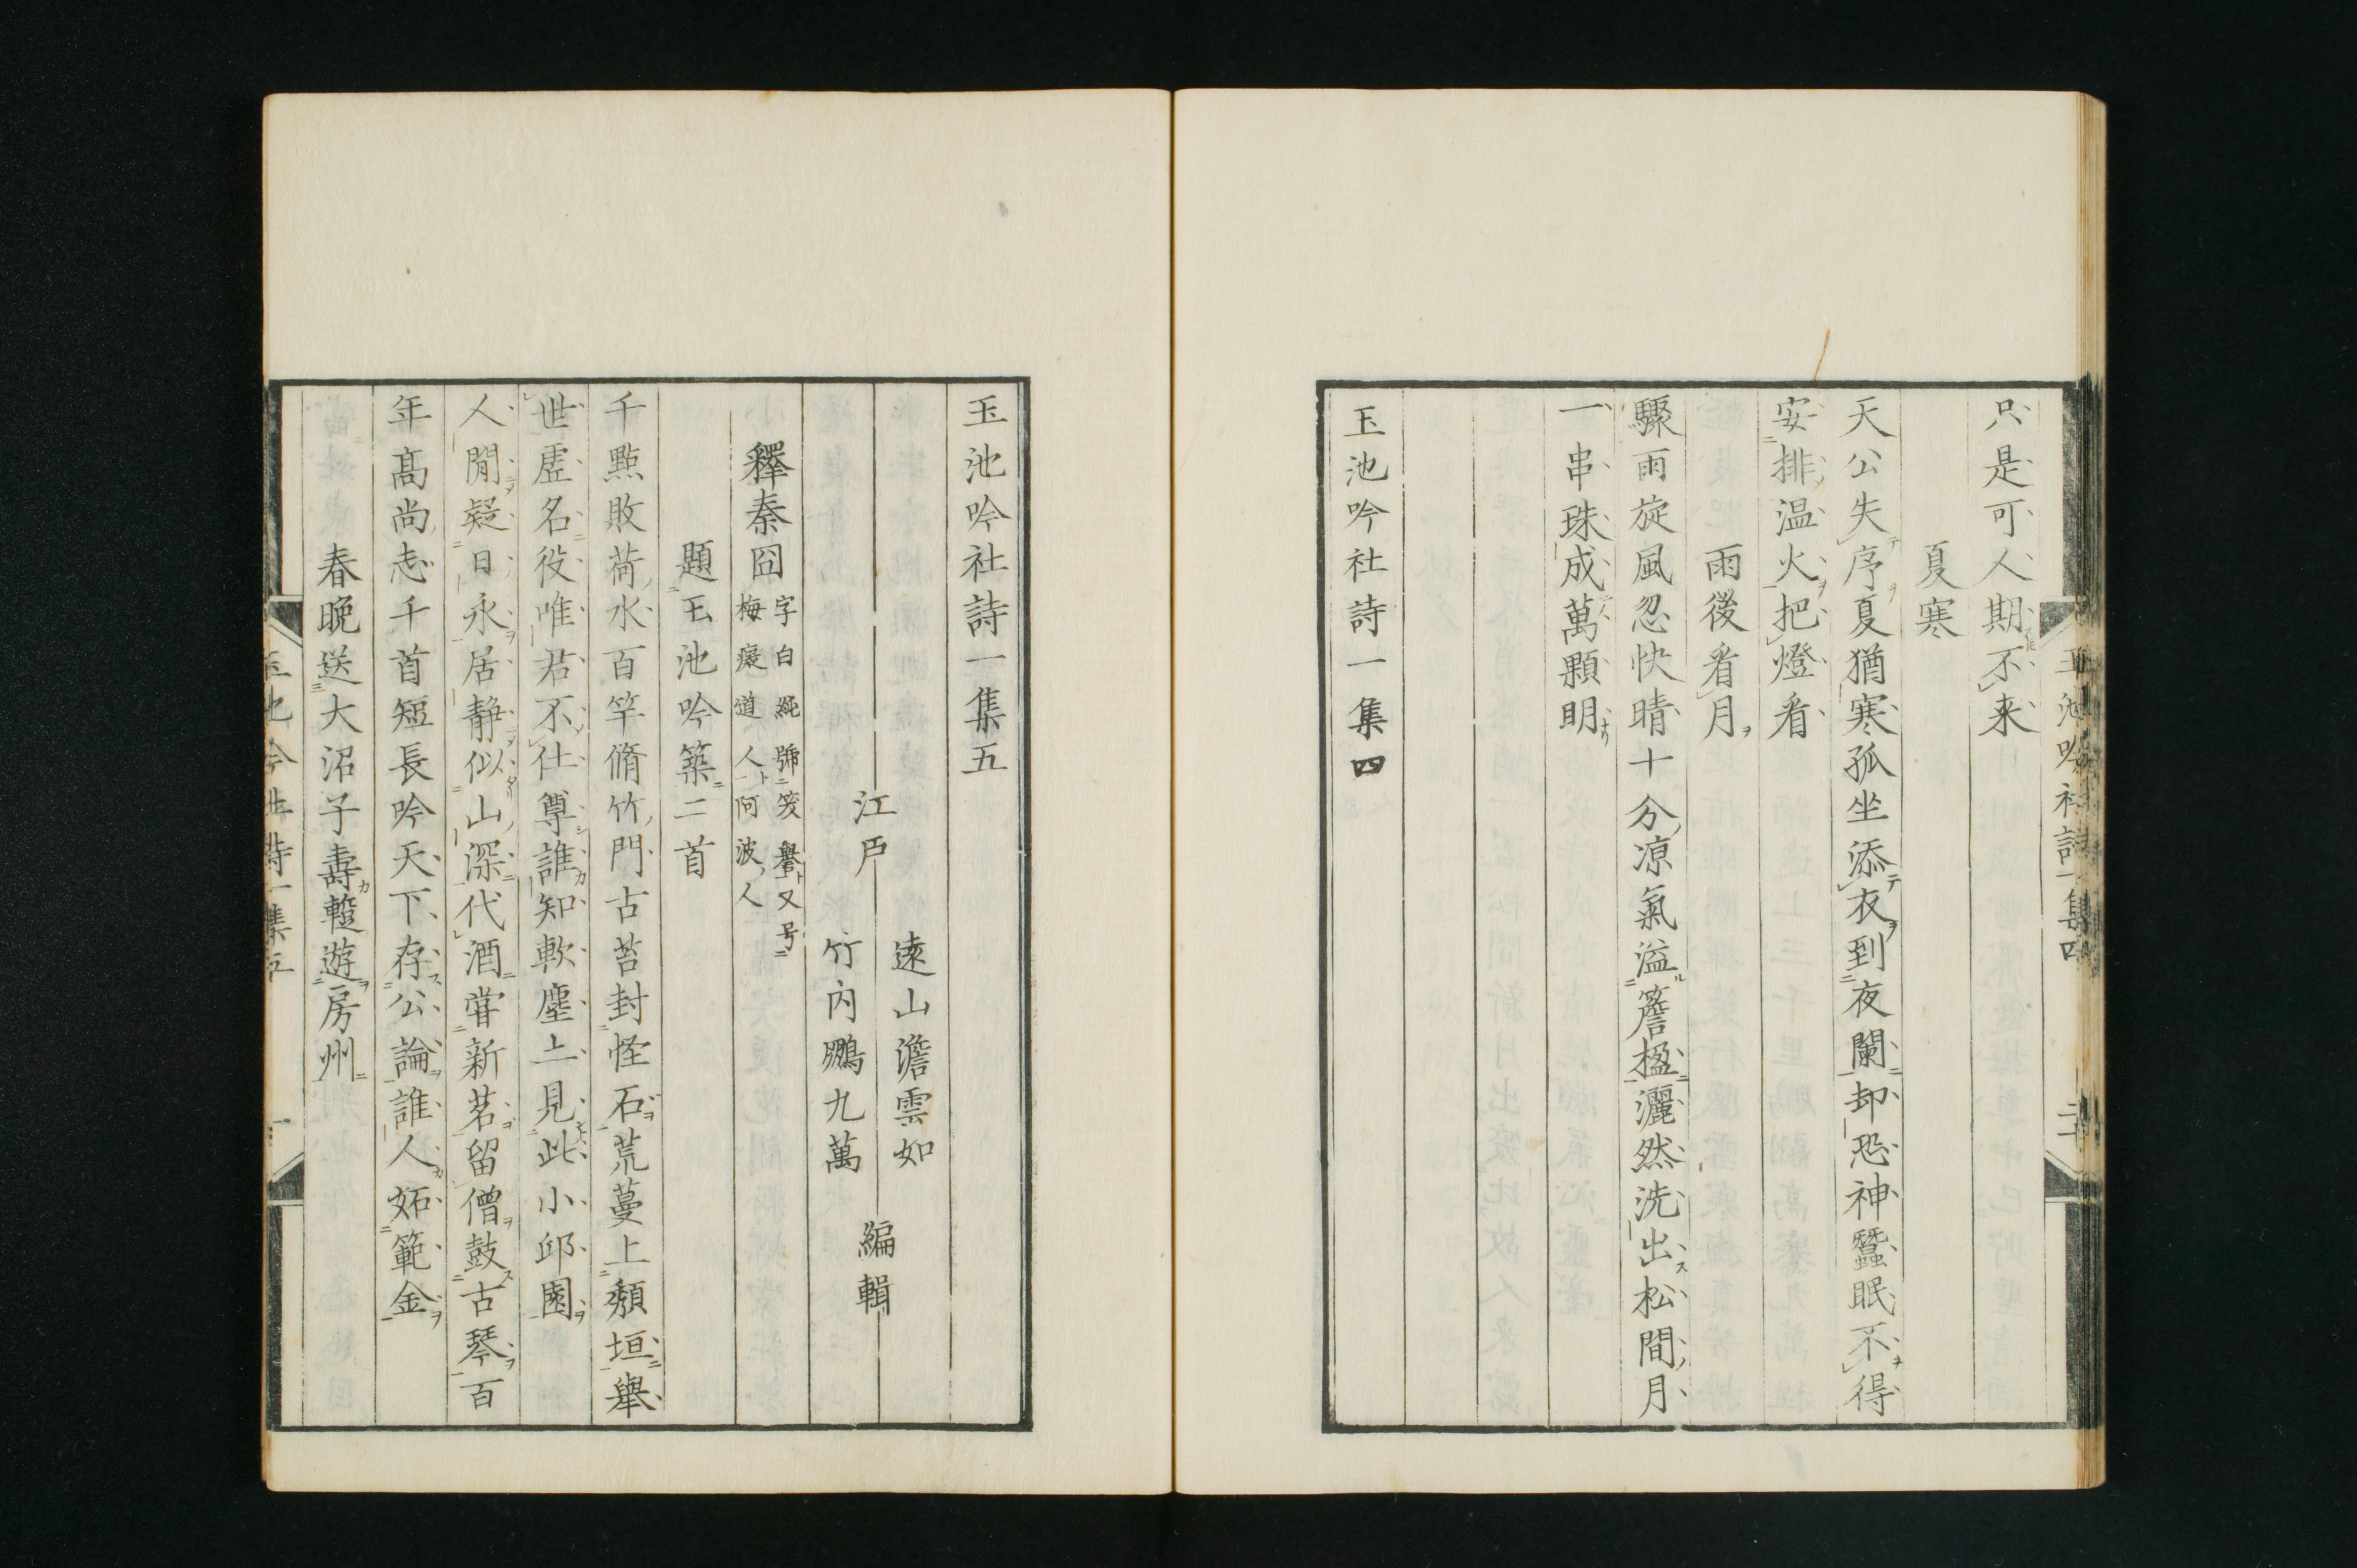 玉池吟社詩一集四
只是可人期不来
夏寒
天公失序夏猶寒孤坐添衣到夜闌却恐神蠶眠不得
安排温火把燈看
雨後看月
驟雨旋風忽快晴十分凉氣溢簷楹灑然洗出松間月
一串珠成萬顆明
玉池吟社詩一集四
玉池吟社詩一集五
遠山澹雲如
江戸
竹内鵬九萬
編輯
釋秦冏
字白純號笑譽又号
梅癡道人阿波人
題玉池吟築二首
千點敗荷水百竿脩竹門古苔封怪石荒蔓上頽垣舉
世虚名役唯君不仕尊誰知軟塵上見此小邱園
人閒疑日永居静似山深代酒甞新茗留僧鼓古琴百
年髙尚志千首短長吟天下存公論誰人妬範金
春晩送大沼子壽䡖遊房州
玉池吟社詩一集五
一